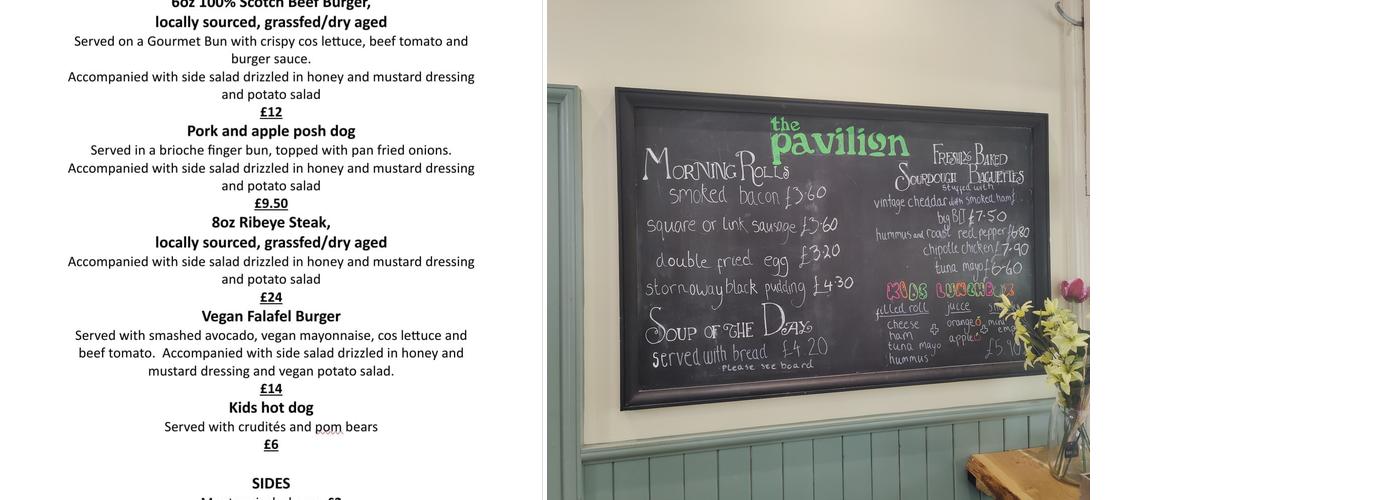 6oz 100% Scotch Beef Burger,
locally sourced, grassfed/dry aged
Served on a Gourmet Bun with crispy cos lettuce, beef tomato and
burger sauce.
Accompanied with side salad drizzled in honey and mustard dressing
and potato salad
£12
Pork and apple posh dog
Served in a brioche finger bun, topped with pan fried onions.
Accompanied with side salad drizzled in honey and mustard dressing
and potato salad
£9.50
8oz Ribeye Steak,
locally sourced, grassfed/dry aged
Accompanied with side salad drizzled in honey and mustard dressing
and potato salad
£24
Vegan Falafel Burger
Served with smashed avocado, vegan mayonnaise, cos lettuce and
beef tomato. Accompanied with side salad drizzled in honey and
mustard dressing and vegan potato salad.
£14
Kids hot dog
Served with crudités and pom bears
£6
SIDES
the
pavilion
MORNING ROLLS
smoked bacon £3.60
square or link sausage £3.60
double fried egg £3.20
stornoway black pudding £4.30
SOUP OF THE DAY
served with bread £4.20
please see board
FRESHLY BAKED
SOURDOUGH BAGUETTES
stuffed with
vintage cheddar with smoked ham
big BLT £7.50
hummus and roast red pepper £6.80
chipotle chicken £7.90
tuna mayo £6.60
KIDS LUNCHBOX
filled roll
cheese
ham
tuna mayo
hummus
juice
orange
apple
mini
£5.90